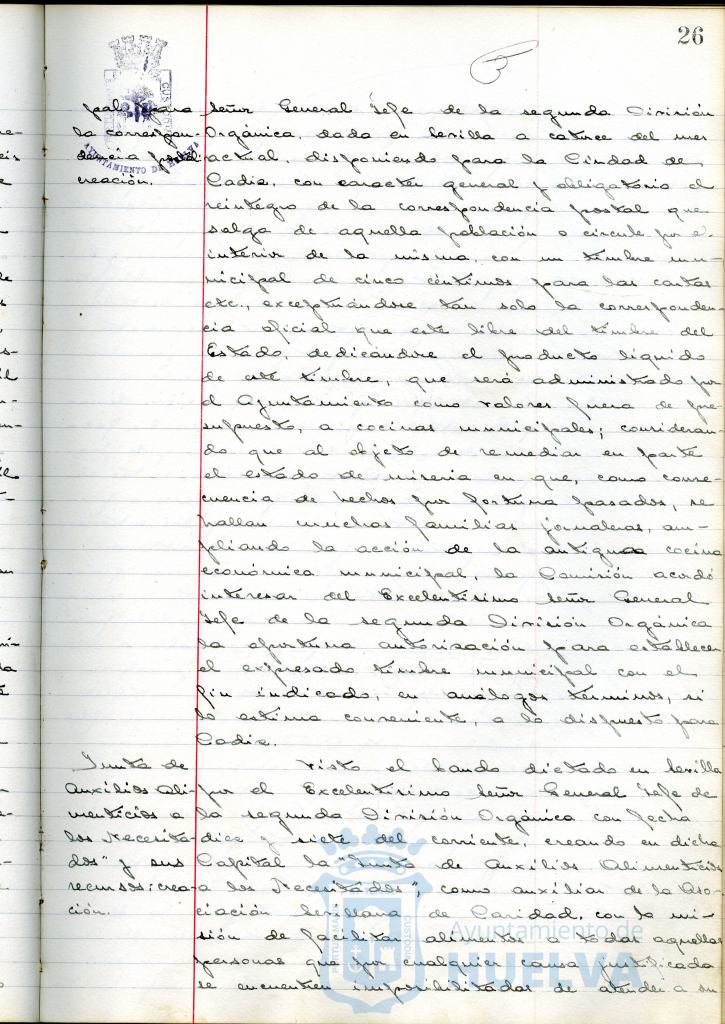 26
pal para
la correspon-
dencia postal:
creación.
Señor General Jefe de la segunda División
Orgánica, dada en Sevilla a catorce del mes
actual, disponiendo para la Ciudad de
Cadiz, con caracter general y obligatorio el
reintegro de la correspondencia postal que
salga de aquella población o circule por el
interior de la misma, con un timbre mu-
nicipal de cinco céntimos para las cartas
etc., exceptuándose tan solo la corresponden-
cia oficial que este libre del timbre del
Estado, dedicándose el producto líquido
de este timbre, que será administrado por
el Ayuntamiento como valores fuera de pre
supuesto, a cocinas municipales; consideran-
do que al objeto de remediar en parte
el estado de miseria en que, como conse-
cuencia de hechos por fortuna pasados, se
hallan muchas familias jornaleras, am-
pliando la acción de la antigua cocina
económica municipal, la Comisión acordó
interesar del Excelentísimo Señor General
Jefe de la segunda División Orgánica
la oportuna autorización para establecer
el expresado timbre municipal con el
fin indicado, en análogos términos, si
lo estima conveniente, a lo dispuesto para
Cadiz.
Junta de
Auxilios Ali-
menticios a
los Necesita-
dos" y sus
recursos: crea-
ción.
Visto el bando dictado en Sevilla
por el Excelentísimo Señor General Jefe de
la segunda División Orgánica con fecha
dice y siete del corriente, creando en dicha
Capital la "Junta de Auxilios Alimenticios
a los Necesitados", como auxiliar de la Aso-
ciación Sevillana de Caridad, con la mi-
sión de facilitar alimentos a todas aquellas
personas que por cualquier causa justificada
se encuentren imposibilitadas de atender a su
AYUNTAMIENTO DE HUELVA
Ayuntamiento de
HUELVA